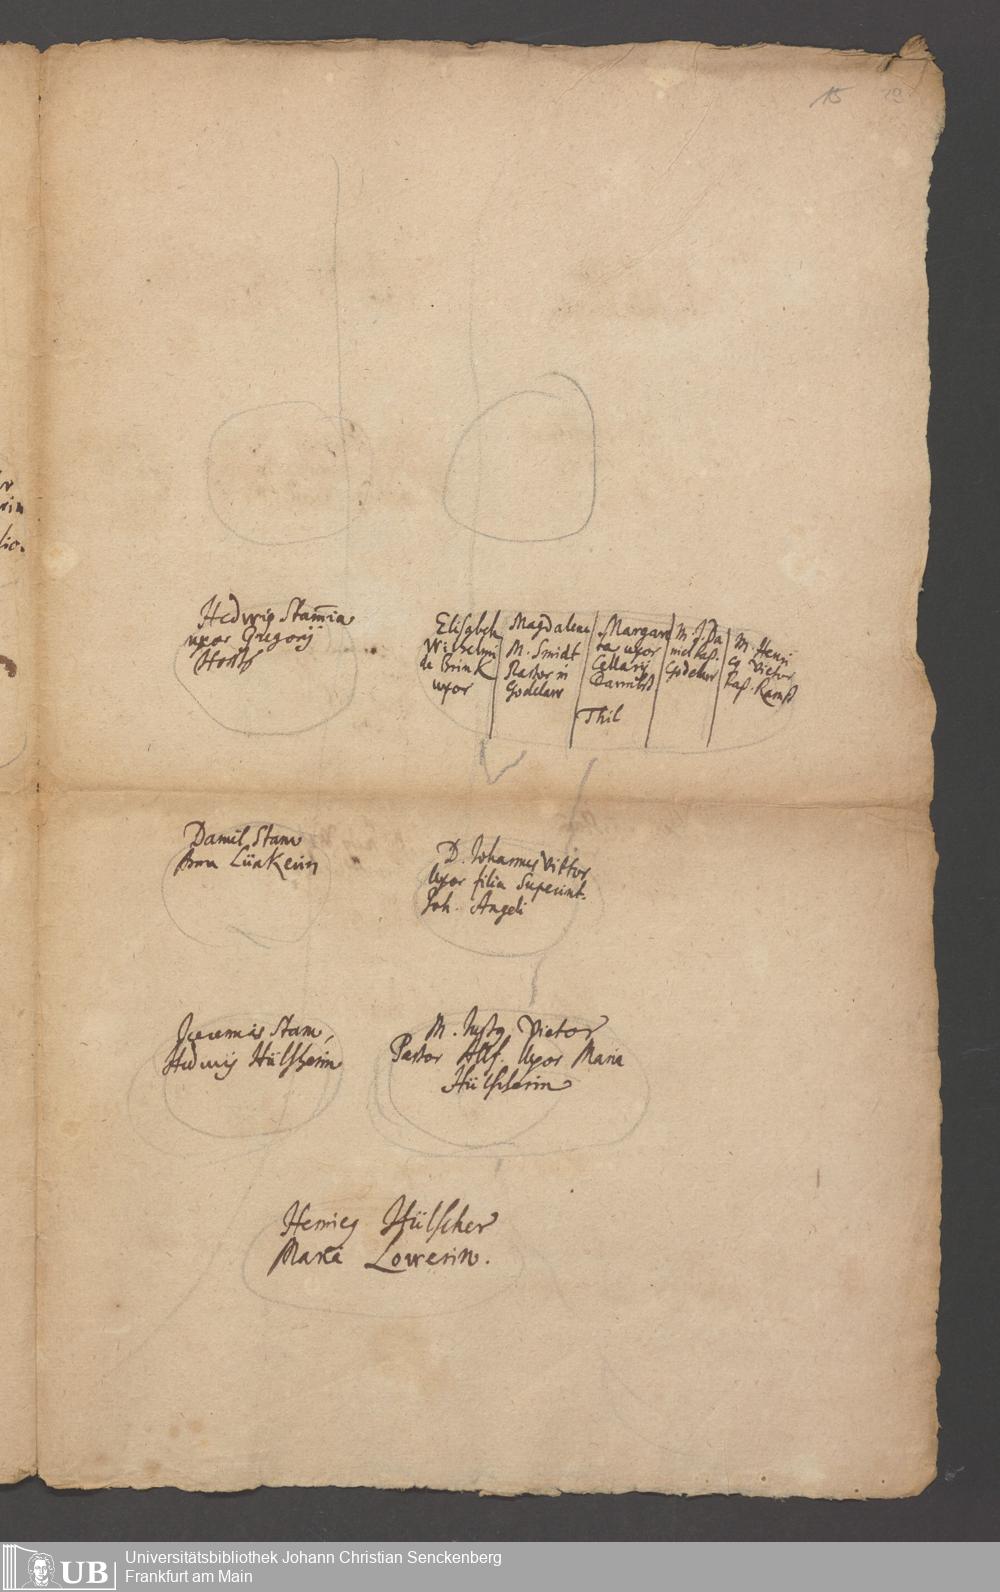 15 29
Hedwig Stam̄ia
uxor Gregorij
Horstÿ
Elisabeth
Wilhelmi
de Brink
uxor
Magdalene
M. Smidt
Pastor in
Godelaw
Margare
ta uxor
Cellarij
Darmbst.
Thil
M. J. Da
niel Past.
Godelaw
M. Henri
cg Victor
Past. Ramst
Daniel Stam
Anna Lünkerin
D. Johannes Viktor
Uxor filia Superint.
Joh. Angeli
Jeremias Stam,
Hedwig Hülscherin
M. Justg Vietor
Pastor Alsf. Uxor Maria
Hülscherin
Henricg Hülscher
Maria Lowerin.
UB
Universitätsbibliothek Johann Christian Senckenberg
Frankfurt am Main